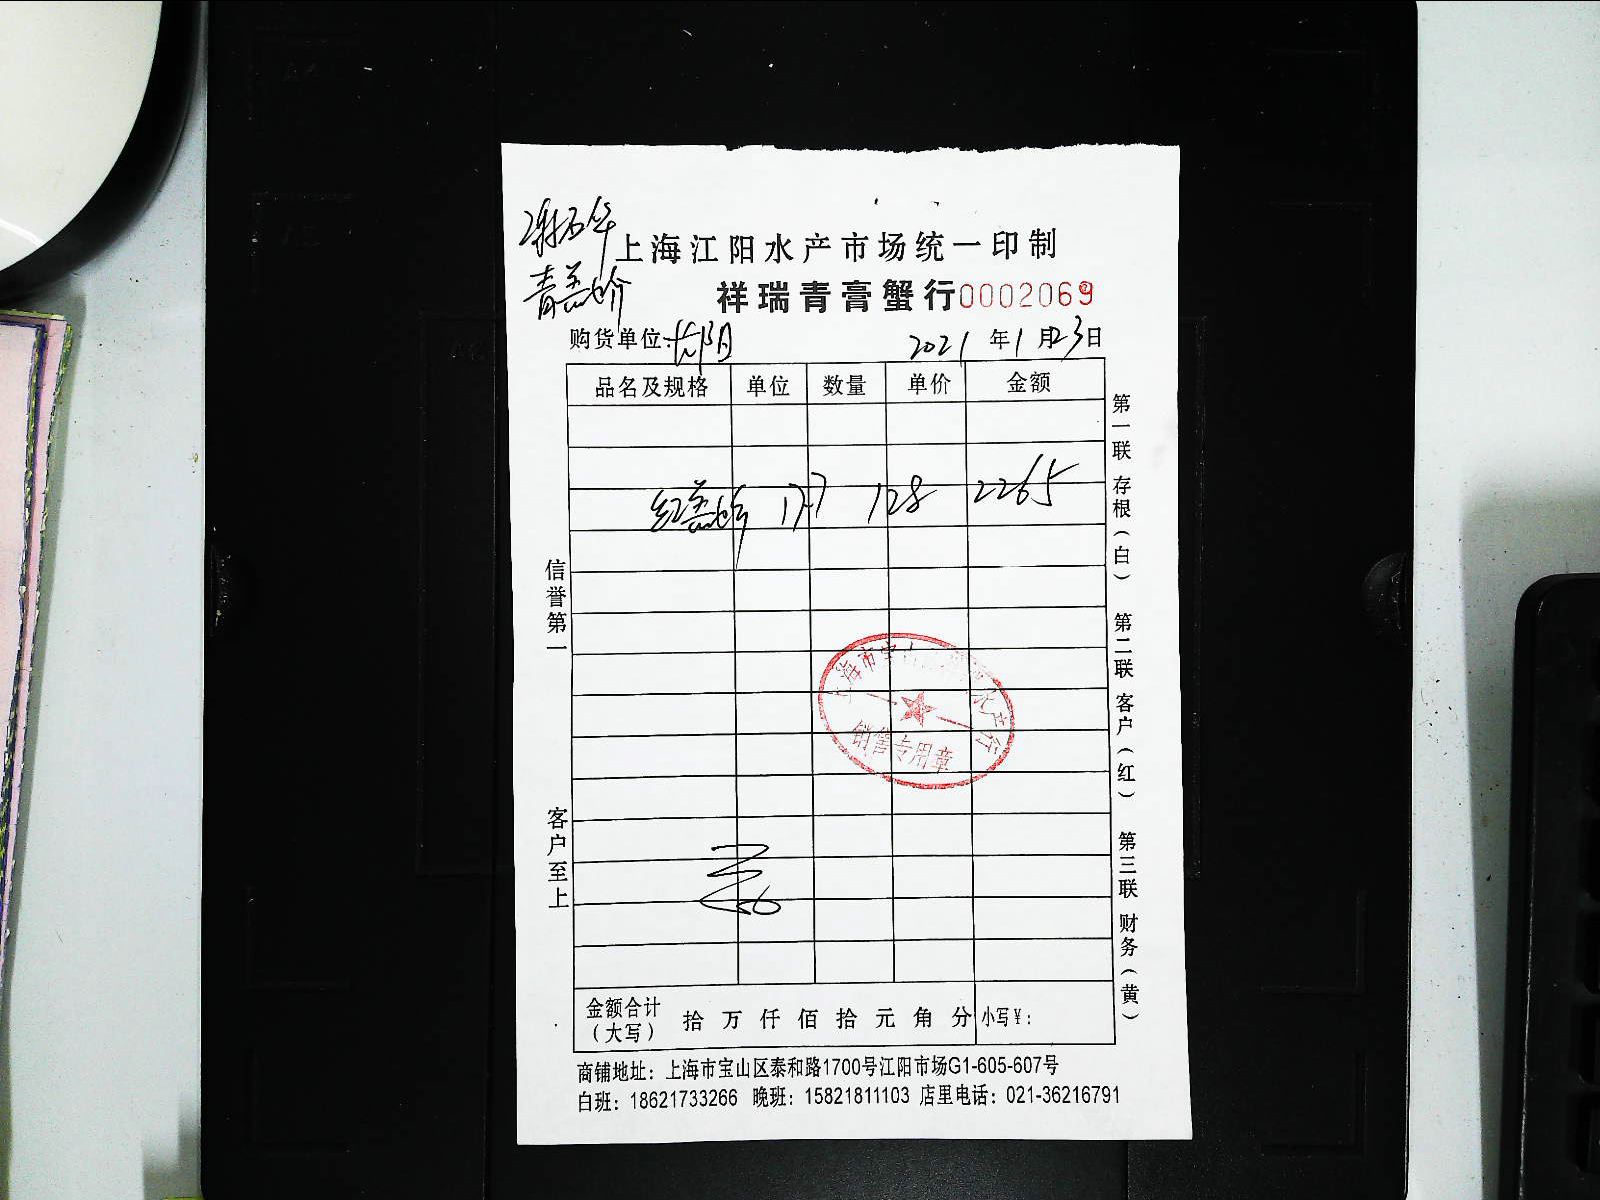 上海江阳水产市场统一印制
祥瑞青膏蟹行 0002069
购货单位: 2021 年 1 月 23 日
品名及规格 单位 数量 单价 金额
17.7 128 2265
信誉第一
客户至上
第一联 存根(白) 第二联 客户(红) 第三联 财务(黄)
上海市宝山 产行
销售专用章
金额合计(大写) 拾 万 仟 佰 拾 元 角 分 小写¥:
商铺地址: 上海市宝山区泰和路1700号江阳市场G1-605-607号
白班: 18621733266 晚班: 15821811103 店里电话: 021-36216791